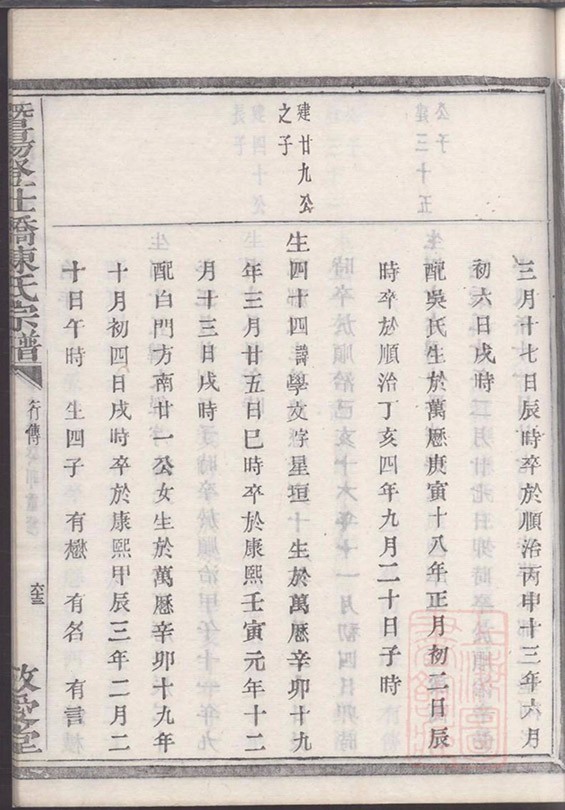 三月十七日辰時卒於順治丙申十三年六月
初六日戌時
配吳氏生於萬曆庚寅十八年正月初二日辰
時卒於順治丁亥四年九月二十日子時
建廿九公
之子
生四十四諱學文字星垣 生於萬曆辛卯十九
年三月廿五日巳時卒於康熙壬寅元年十二
月十三日戌時
配白門方南廿一公女生於萬曆辛卯十九年
十月初四日戌時卒於康熙甲辰三年二月二
十日午時 生四子 有懋 有名 有言
暨陽登仕橋陳氏宗譜
行傳
敬愛堂